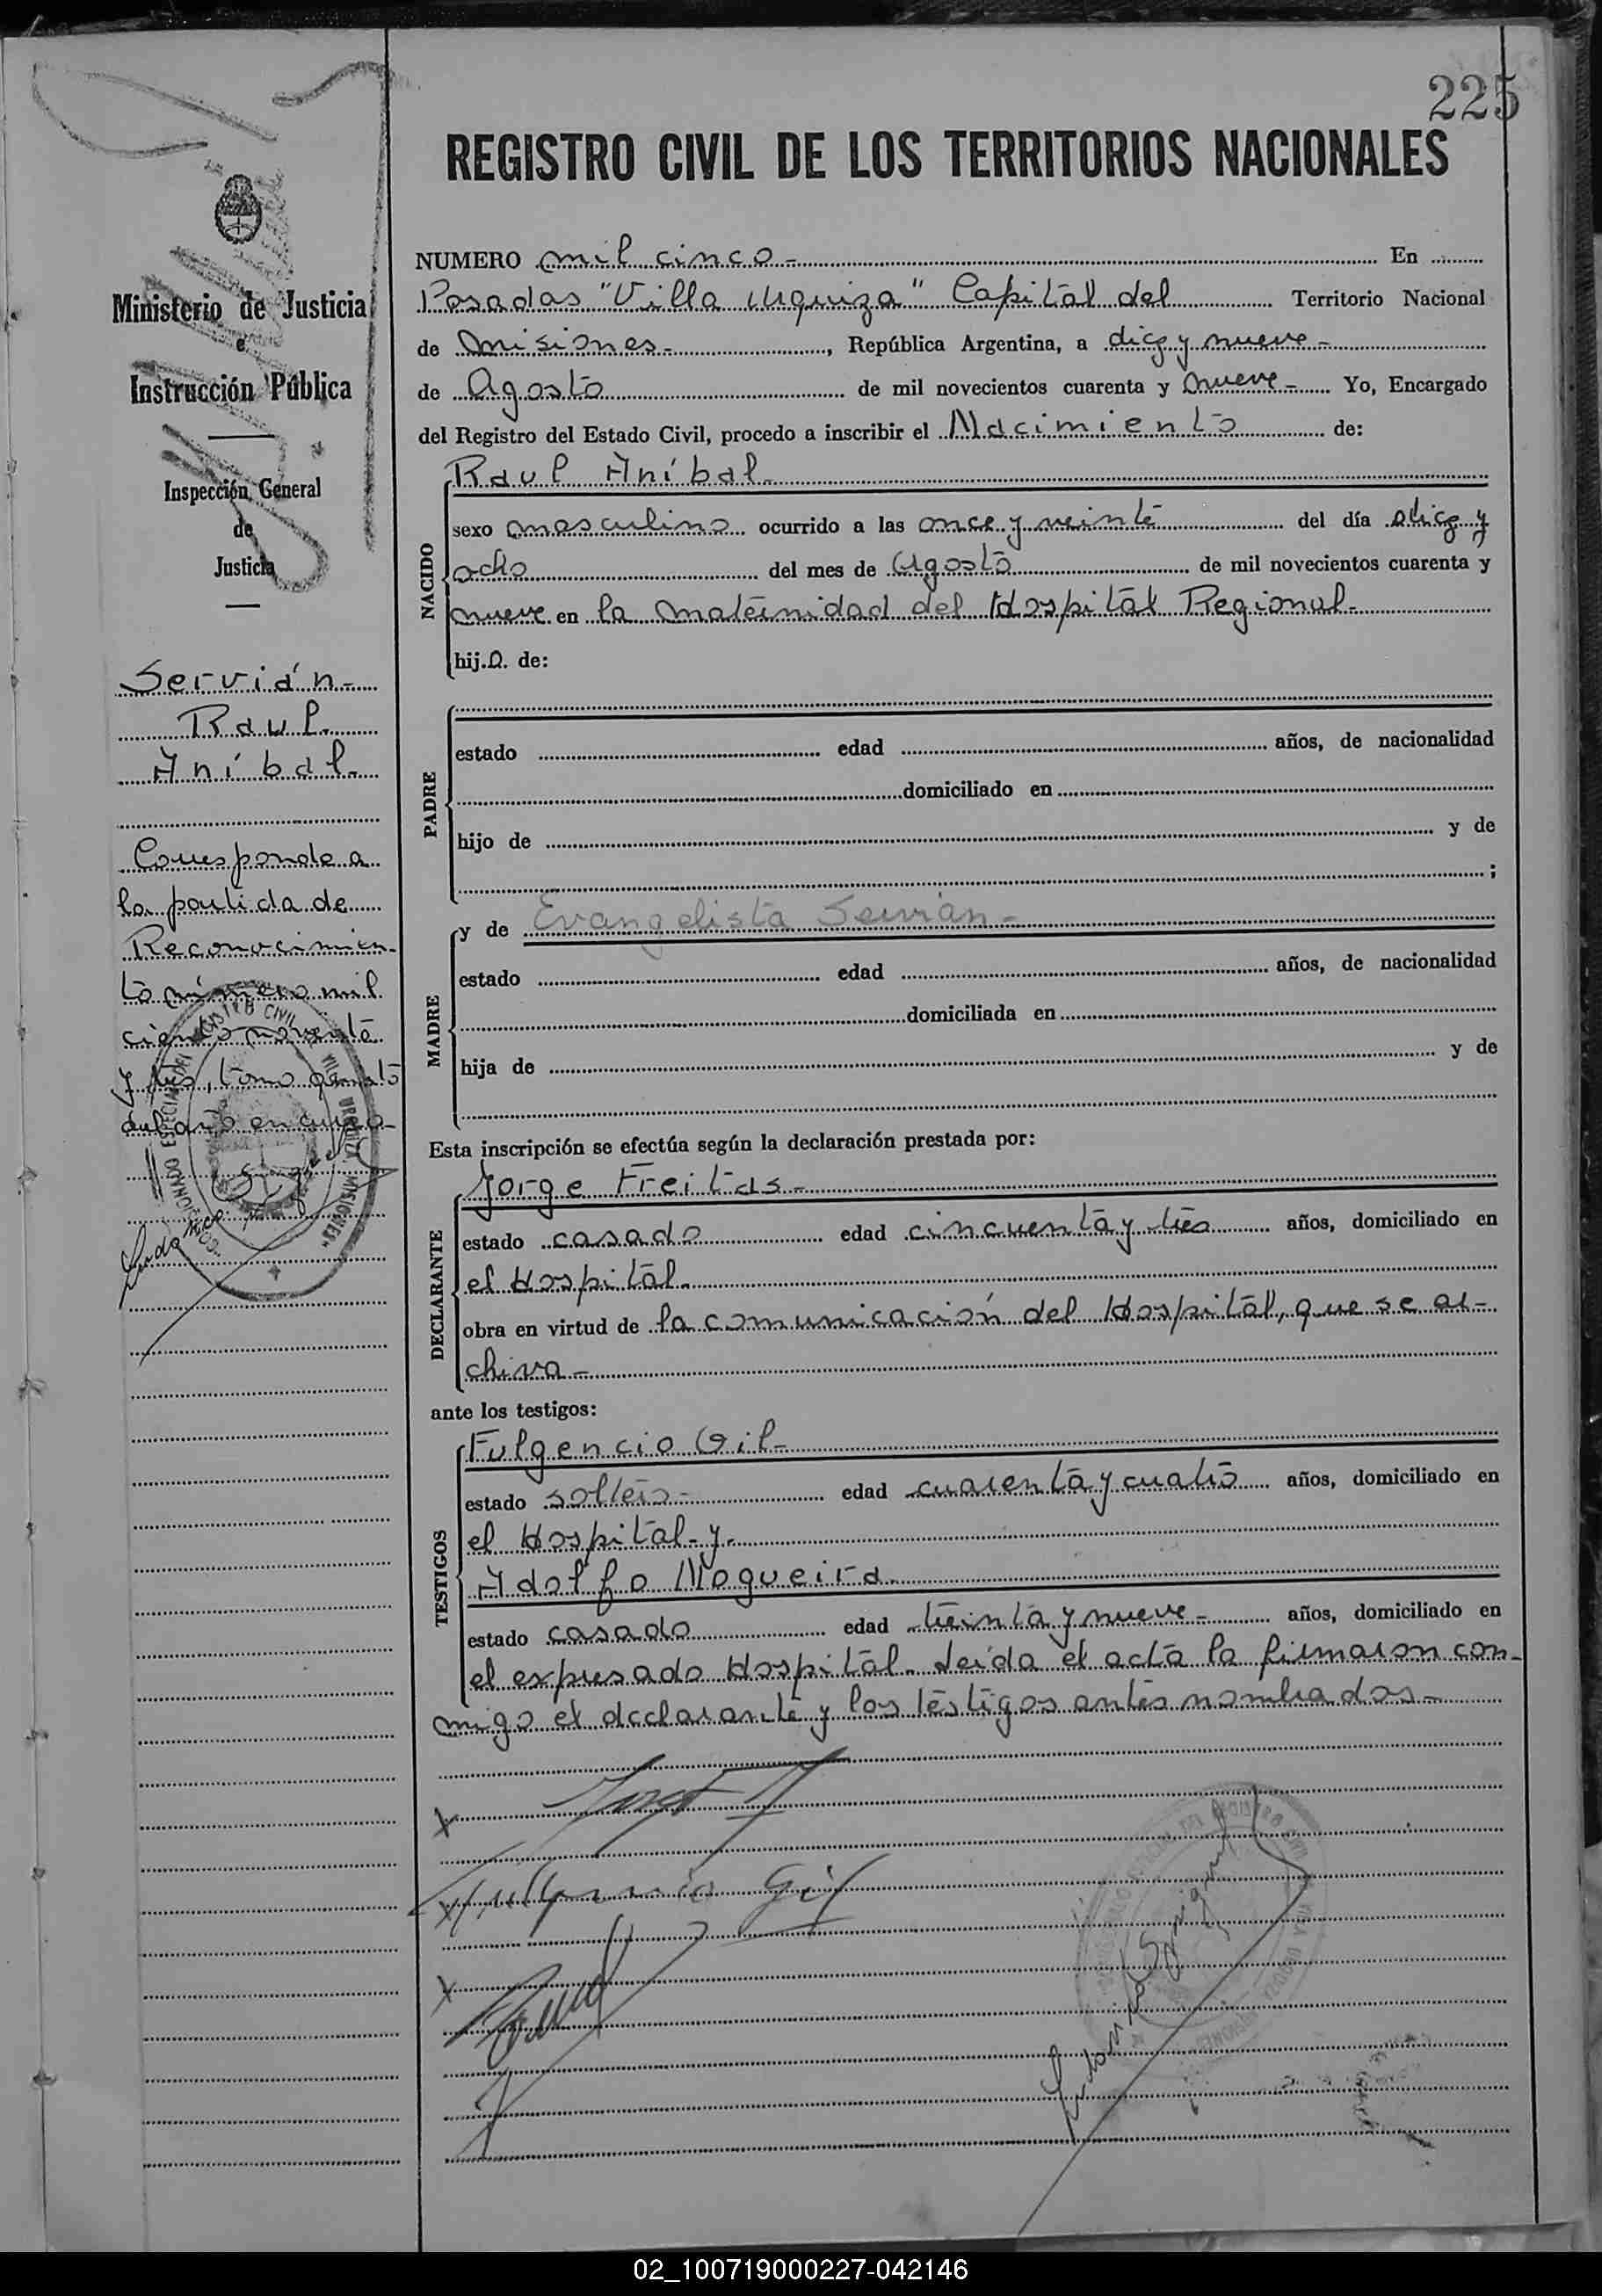 225
REGISTRO CIVIL DE LOS TERRITORIOS NACIONALES
Ministerio de Justicia
e
Instrucción Pública
Inspección General
de
Justicia
Servián-
Raul
Aníbal.
Corresponde a
la partida de
Reconocimien-
to número mil
ciento noventa
y tres, tomo cuarto
del año en curso-
NUMERO mil cinco- En
Posadas "Villa Urquiza" Capital del Territorio Nacional
de Misiones-, República Argentina, a diez y nueve-
de Agosto de mil novecientos cuarenta y nueve- Yo, Encargado
del Registro del Estado Civil, procedo a inscribir el Nacimiento de:
NACIDO
Raul Aníbal.
sexo masculino ocurrido a las once y veinte del día diez y
ocho del mes de Agosto de mil novecientos cuarenta y
nueve en la maternidad del Hospital Regional-
hijo de:
PADRE
estado edad años, de nacionalidad
domiciliado en
hijo de y de
;
MADRE
y de Evangelista Servián-
estado edad años, de nacionalidad
domiciliada en
hija de y de
Esta inscripción se efectúa según la declaración prestada por:
DECLARANTE
Jorge Freitas-
estado casado edad cincuenta y tres años, domiciliado en
el Hospital.
obra en virtud de la comunicación del Hospital, que se ar-
chiva-
ante los testigos:
TESTIGOS
Fulgencio Gil-
estado soltero- edad cuarenta y cuatro años, domiciliado en
el Hospital-y-
Adolfo Nogueira.
estado casado edad treinta y nueve- años, domiciliado en
el expresado Hospital. Leída el acta la firmaron con-
migo el declarante y los testigos antes nombrados-
Fulgencio Gil
02_100719000227-042146